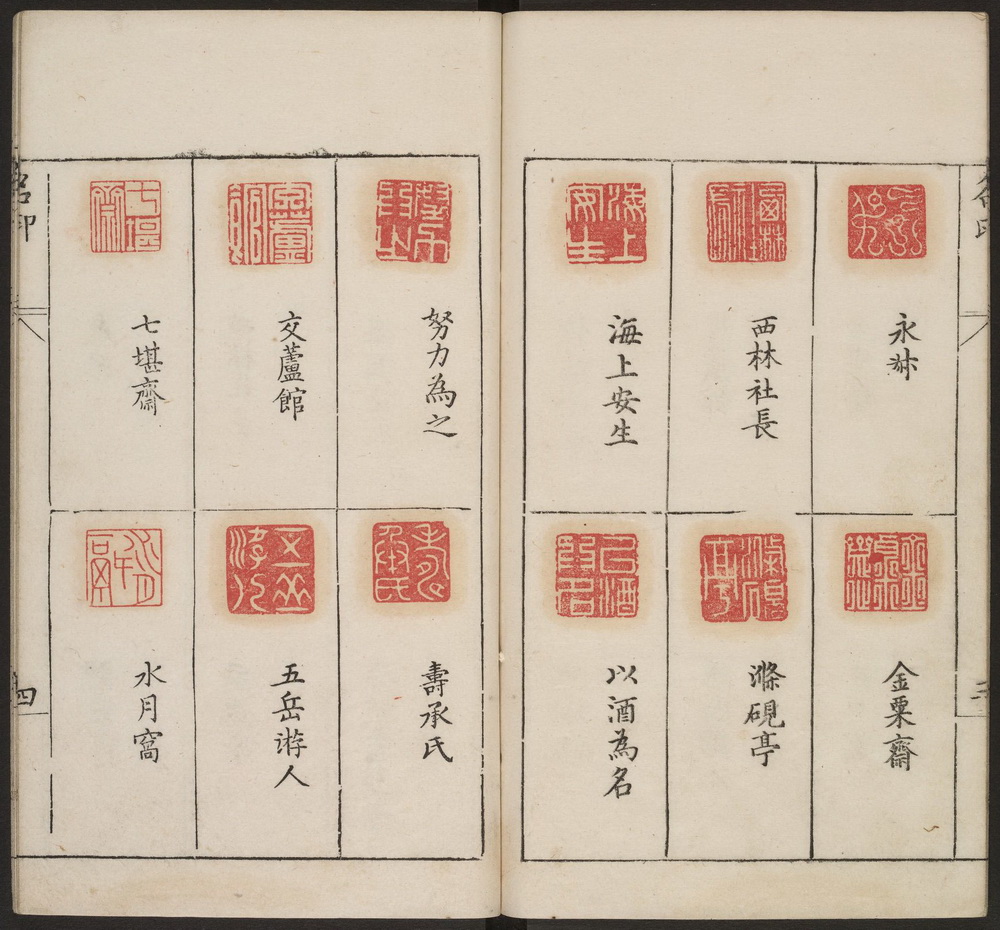 永䢼
西林社長
海上安生
金粟齋
滌硯亭
以酒為名
努力為之
交蘆館
七堪齋
壽承氏
五岳游人
水月窩
名印
四